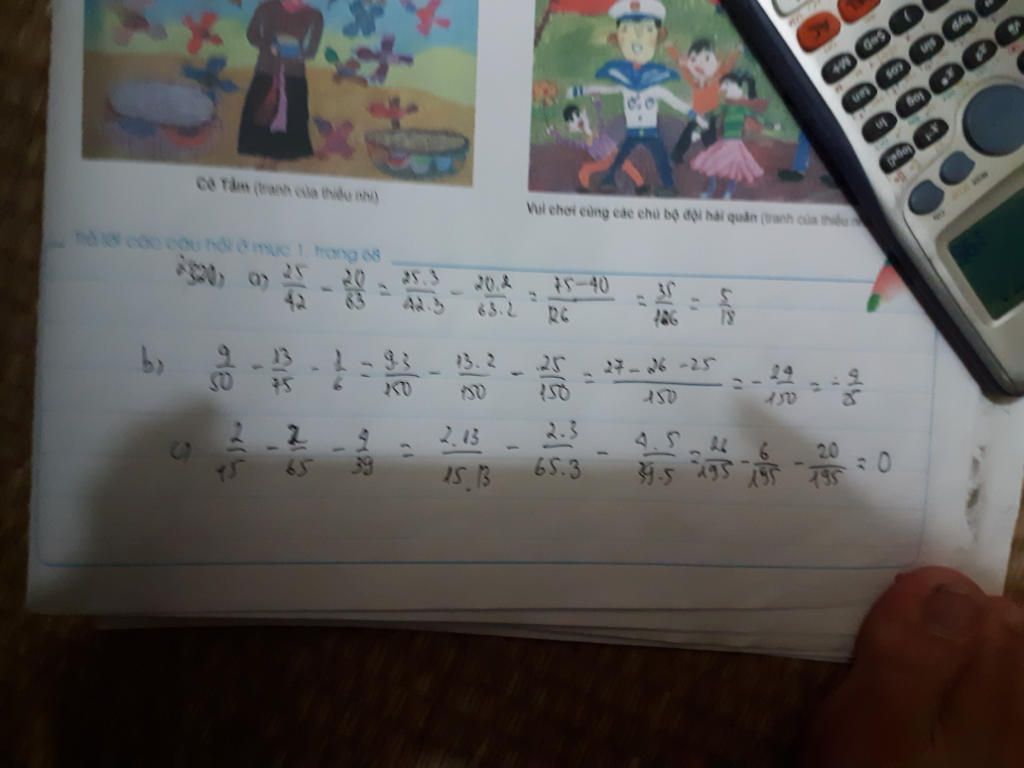 Cô Tấm (tranh của thiếu nhi)
Vui chơi cùng các chú bộ đội hải quân (tranh của thiếu
Trả lời các câu hỏi ở mục 1, trang 68
a) 25/42 - 20/63 = 25.3/42.3 - 20.2/63.2 = 75-40/126 = 35/126 = 5/18
b) 9/50 - 13/75 - 1/6 = 9.3/150 - 13.2/150 - 25/150 = 27-26-25/150 = -24/150 =
c) 2/15 - 2/65 - 4/39 = 2.13/15.13 - 2.3/65.3 - 4.5/39.5 = 26/195 - 6/195 - 20/195 = 0
M+
S⇔D
)
tan
cos
sin
hyp
ln
log
x²
ON